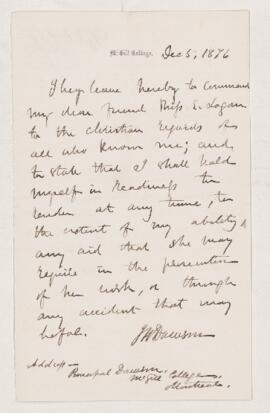 McGill College, Dec 5, 1876
I beg leave hereby to commend
my dear friend Miss E. Logan
to the Christian regards of
all who know me; and
to state that I shall hold
myself in readiness to
tender at any time, to
the extent of my ability
any aid that she may
require in the prosecution
of her work, or through
any accident that may
befal.
JWDawson
Address—
Principal Dawson,
McGill College,
Montreal.